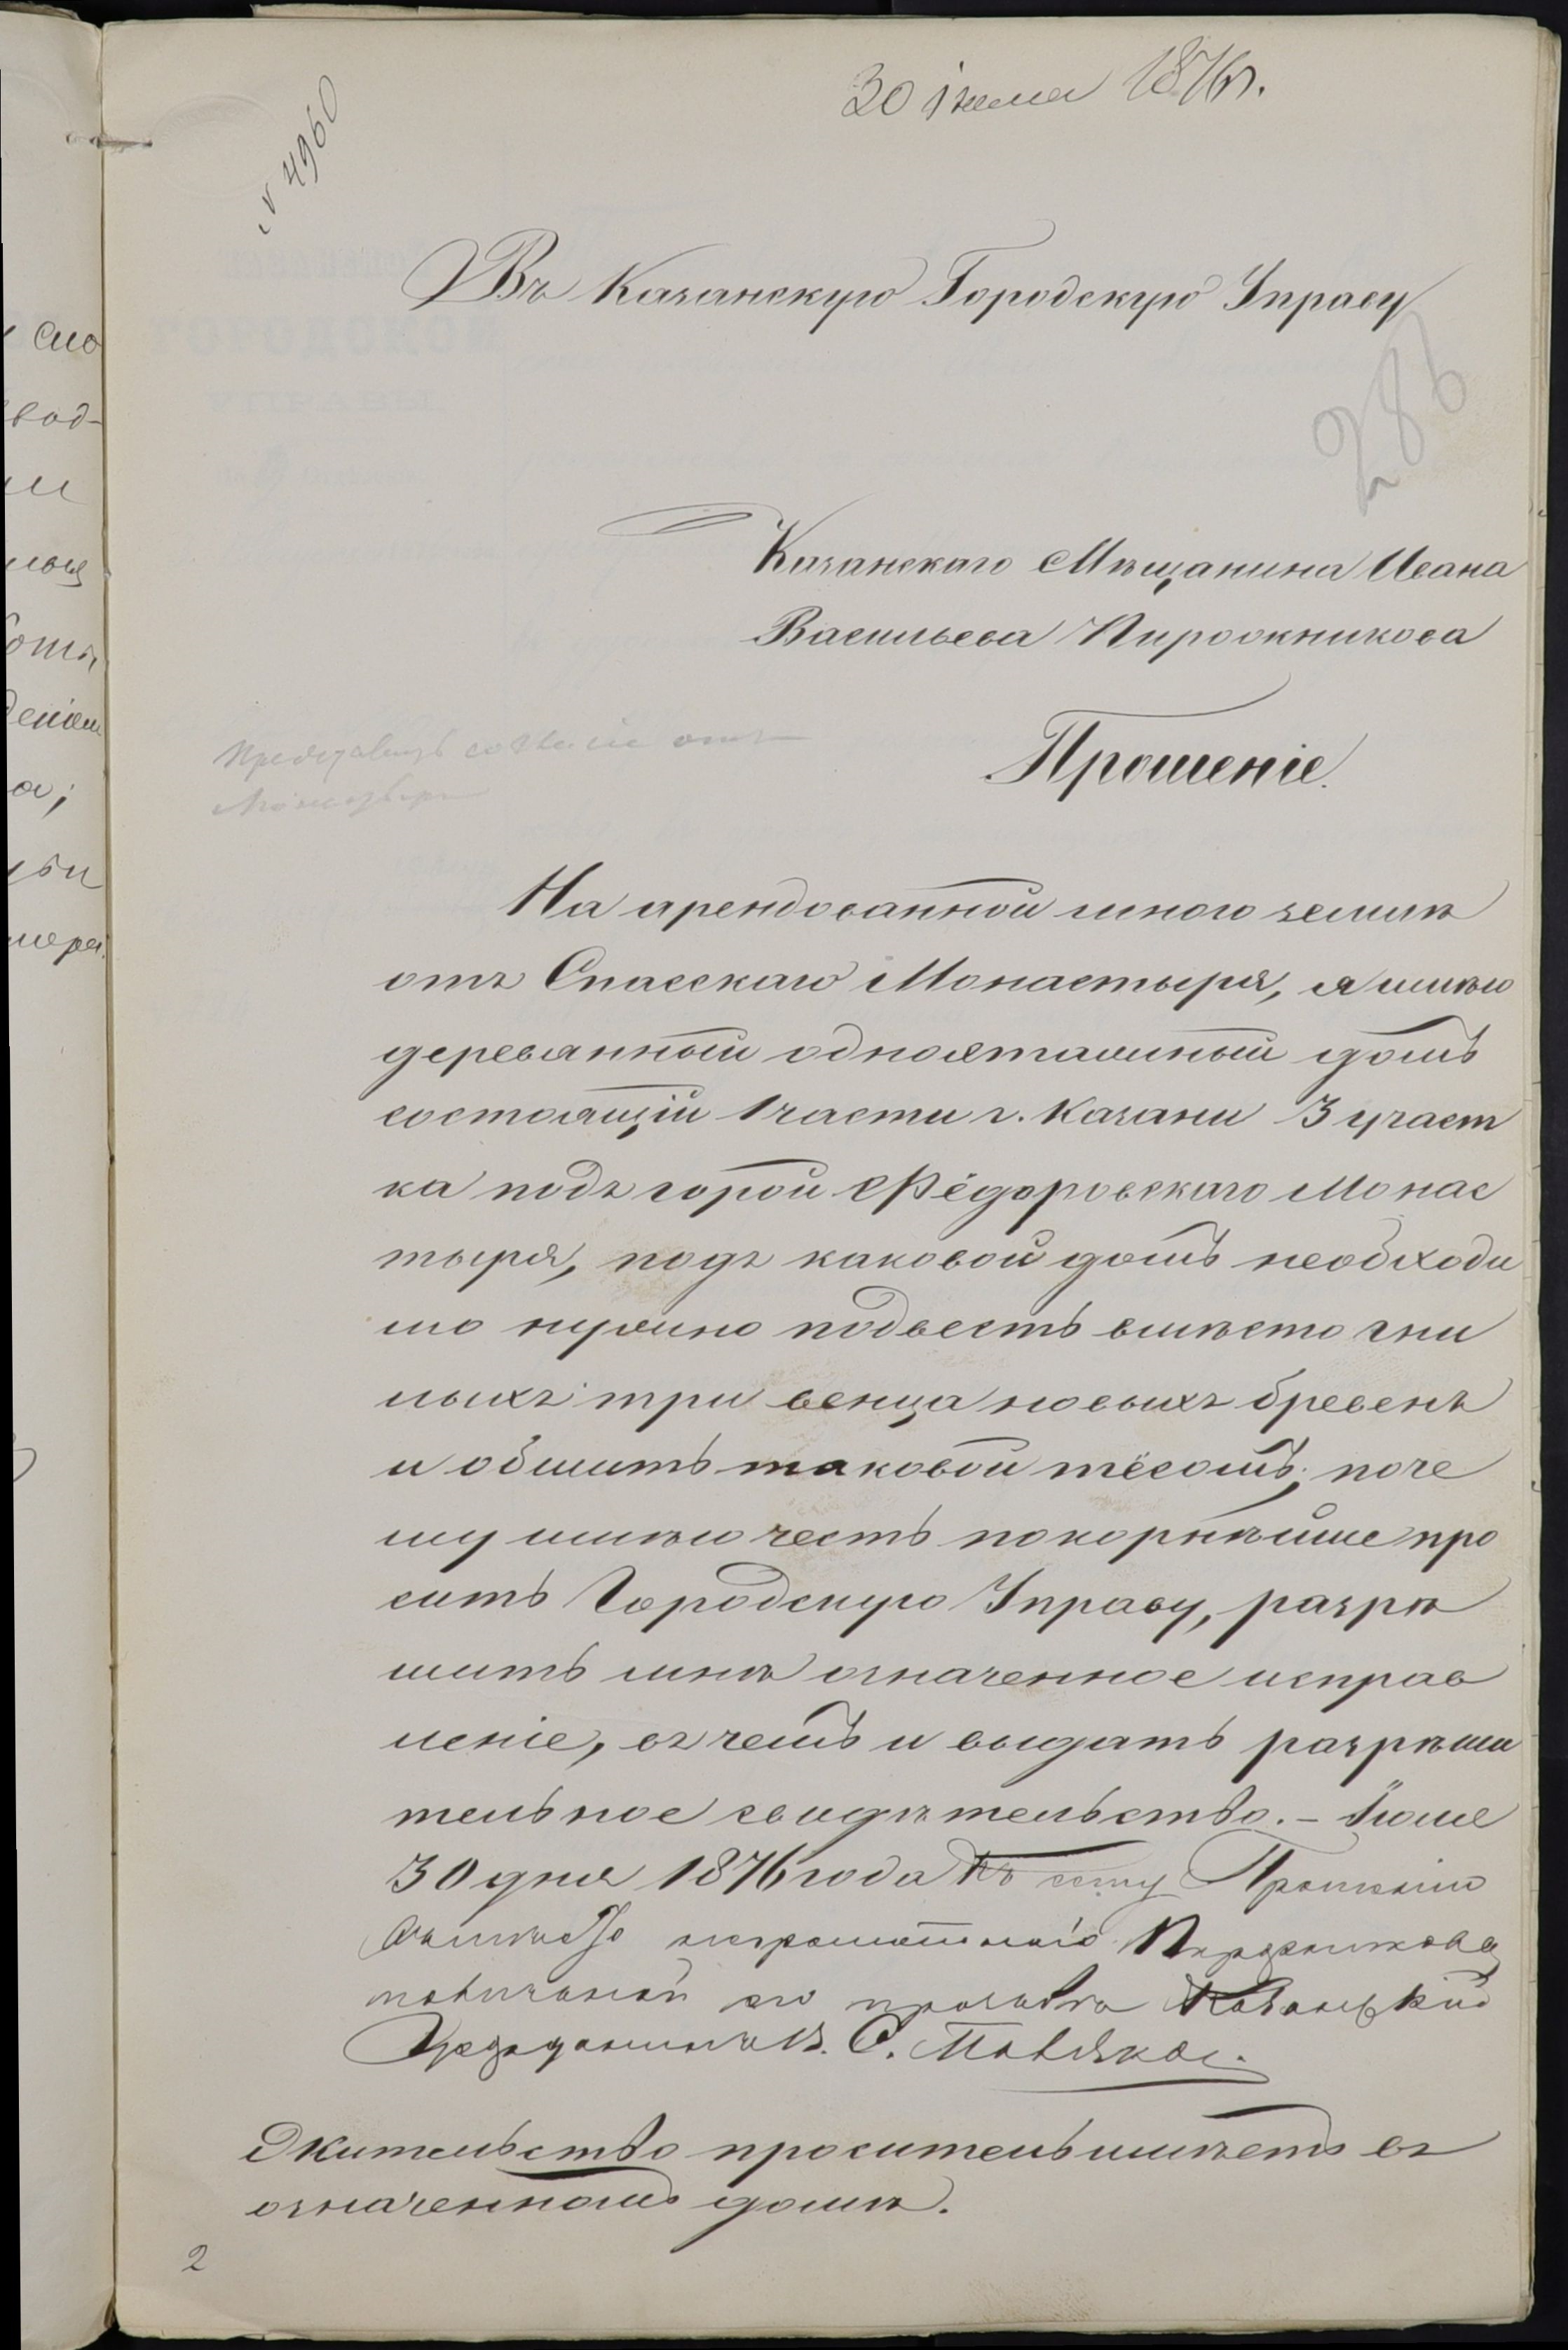 30 іюня 1876 г.
№ 4960
Въ Казанскую Городскую Управу
286
Казанскаго Мѣщанина Ивана
Васильева Пирожникова
Прошеніе.
Представить согласіе отъ
Монастыря
На арендованной мною землѣ
отъ Спасскаго Монастыря, я имѣю
деревянный одноэтажный домъ
состоящій 1 части г. Казани 3 участ
ка подъ горой Фёдоровскаго Монас
тыря, подъ каковой домъ необходи
мо нужно подвесть вмѣсто гни
лыхъ три венца новыхъ бревенъ
и обшить таковой тёсомъ; поче
му имѣю честь покорнѣйше про
сить Городскую Управу, разрѣ
шить мнѣ означенное исправ
леніе, въ чемъ и выдать разрѣши
тельное свидѣтельство. – Іюня
30 дня 1876 года Къ сему Прошенію
вмѣсто неграмотнаго Пирожникова
по личной его просьбѣ Казанскій
С.
Жительство проситель имѣетъ въ
означенномъ домѣ.
2